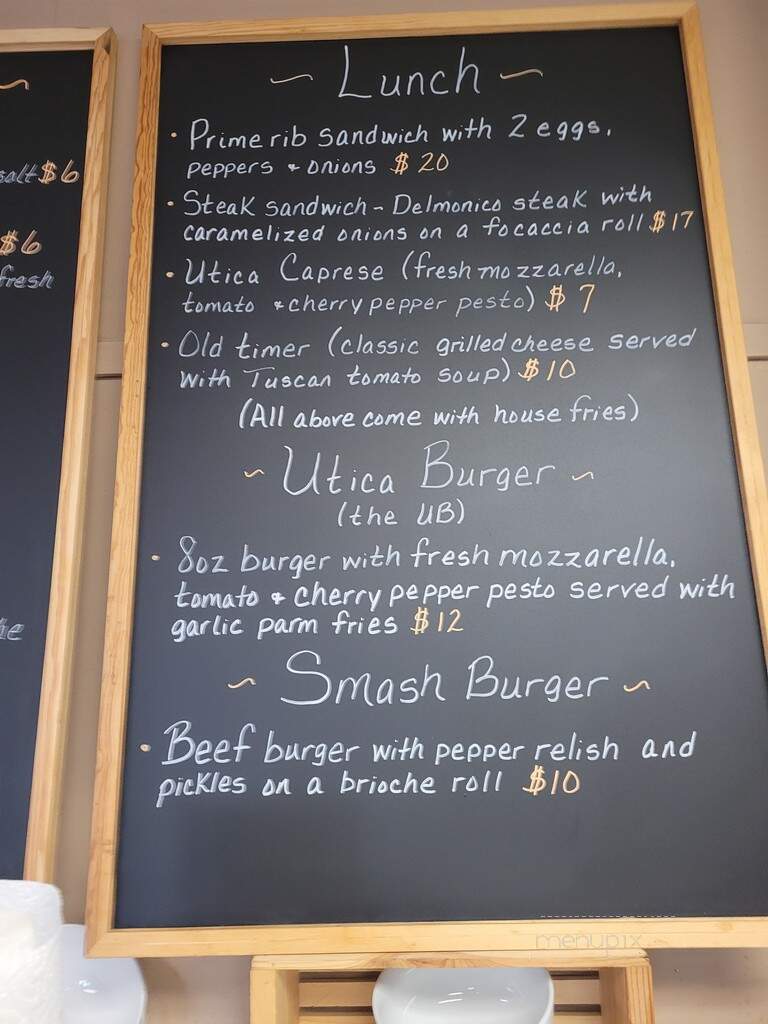 ~ Lunch ~
• Prime rib sandwich with 2 eggs,
peppers & onions $20
• Steak sandwich - Delmonico steak with
caramelized onions on a focaccia roll $17
• Utica Caprese (fresh mozzarella,
tomato & cherry pepper pesto) $7
• Old timer (classic grilled cheese served
with Tuscan tomato soup) $10
(All above come with house fries)
~ Utica Burger ~
(the UB)
• 8oz burger with fresh mozzarella,
tomato & cherry pepper pesto served with
garlic parm fries $12
~ Smash Burger ~
• Beef burger with pepper relish and
pickles on a brioche roll $10
salt $6
$6
fresh
menupix